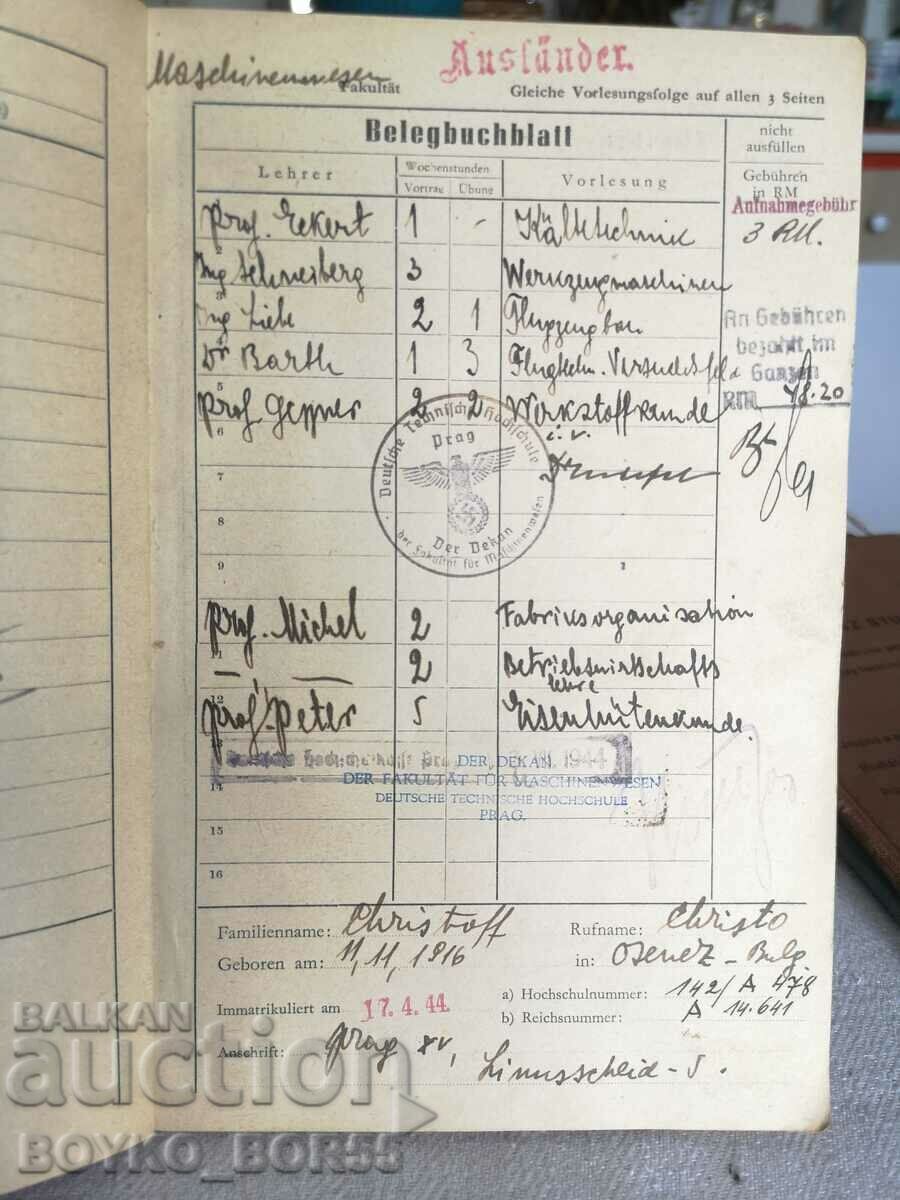 Maschinenwesen Fakultät
Ausländer.
Gleiche Vorlesungsfolge auf allen 3 Seiten
Belegbuchblatt
nicht ausfüllen
Lehrer
Wochenstunden
Vortrag Übung
Vorlesung
Gebühren in RM
Aufnahmegebühr
3 RM.
Prof. Eckert 1 - Kältetechnik
2
Ing Schneiberg 3 Werkzeugmaschinen
3
Ing Liebe 2 1 Flugzeugbau
An Gebühren
bezahlt im
Ganzen
RM 48.20
Dr Barth 1 3 Flugtechn. Versuchsfeld
5
Prof Gessner 2 2 Werkstoffkunde
6
i.v.
Deutsche Technische Hochschule
Prag
Der Dekan
der Fakultät für Maschinenwesen
7
8
9
Prof. Michel 2 Fabriksorganisation
11
— " — 2 Betriebswirtschafts
lehre
12
Prof. Peter 5 Eisenhüttenkunde.
13
1944
DER DEKAN
DER FAKULTÄT FÜR MASCHINENWESEN
14
DEUTSCHE TECHNISCHE HOCHSCHULE
PRAG.
15
16
Familienname: Christoff Rufname: Christo
Geboren am: 11,11,1916 in: Osenez - Bulg
Immatrikuliert am 17.4.44 a) Hochschulnummer: 142/A 478
b) Reichsnummer: A 14.641
Anschrift: Prag XV,
- 5.
BALKAN
auction
BOYKO_BOR55